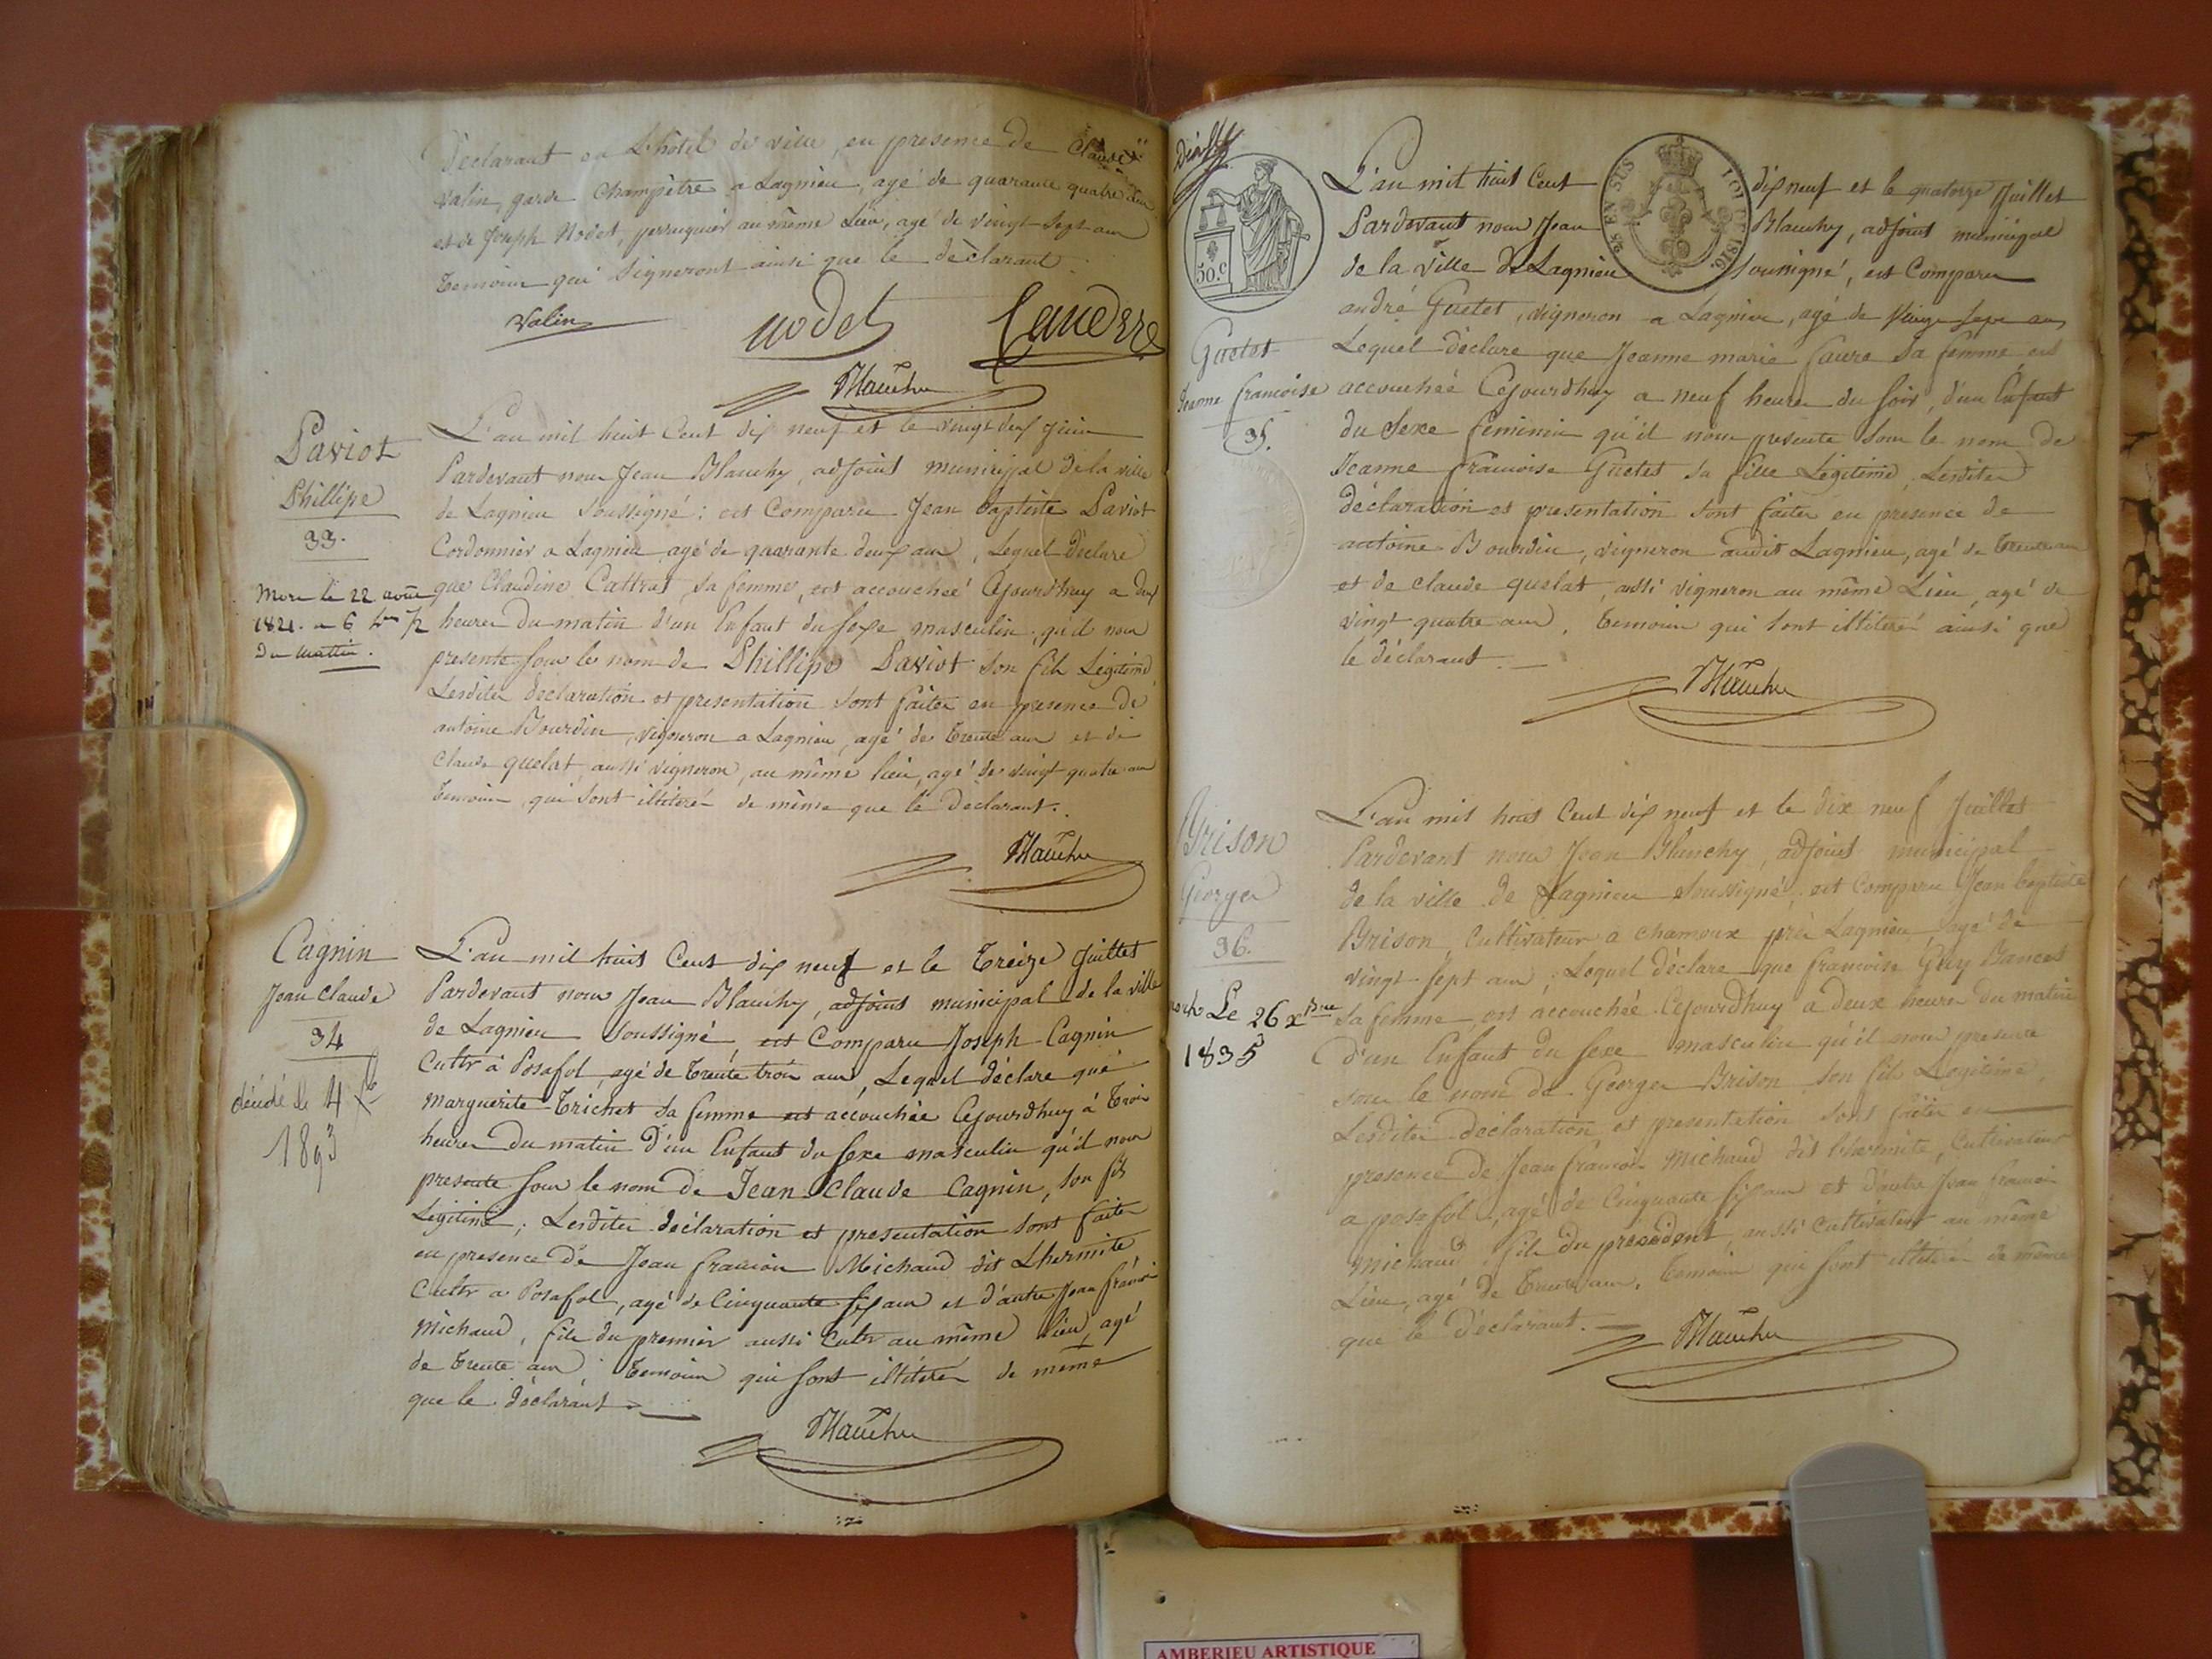 Déclarant en L'hôtel de ville, en presence de Claude
Valin, garde champêtre a Lagnieu, agé de quarante quatre ans
et de Joseph Nodet, perruquier au même Lieu, agé de vingt-sept ans
temoins qui signeront ainsi que le déclarant.
Valin
nodet
Blanchy
Paviot
Phillipe
33.
Mort le 22 août
1821. a 6 h
du matin.
L'an mil huit Cent dix neuf et le vingt deux juin
Pardevant nous Jean Blanchy, adjoint municipal de la ville
de Lagnieu soussigné: est Comparu Jean baptiste Paviot
Cordonnier a Lagnieu agé de quarante deux ans, Lequel déclare
que Claudine Cattrat sa femme, est accouchée Cejourdhuy a dix
heures du matin d'un Enfant du sexe masculin, qu'il nous
presente sous le nom de Phillipe Paviot son fils Légitime,
Lesdites declaration et presentation sont faites en presence de
antoine Bourdin, vigneron a Lagnieu, agé de trente ans et de
Claude quelat aussi vigneron, au même lieu, agé de vingt quatre ans
temoins, qui sont illiterés de même que le Déclarant.
Blanchy
Cagnin
Jean Claude
34
décédé le 4
1893
L'an mil huit Cent dix neuf et le treize Juillet
Pardevant nous Jean Blanchy, adjoint municipal de la ville
de Lagnieu soussigné est Comparu Joseph Cagnin
Cultr à Posafol, agé de trente trois ans, Lequel déclare que
marguerite Trichet sa femme est accouchée Cejourdhuy à trois
heures du matin d'un Enfant du sexe masculin qu'il nous
presente sous le nom de Jean Claude Cagnin, son fils
Légitime; Lesdites déclaration et presentation sont faites
en presence de Jean françois Michaud dit Lhermite,
Cultr a Posafol, agé de Cinquante six ans et d'autre Jean françois
Michaud, fils du premier aussi Cultr au même lieu, agé
de trente ans, temoins qui sont illiterés de même
que le déclarant.
Blanchy
50.c
EN SUS
LOI DE 1816
L'an mil huit Cent dix neuf et le quatorze Juillet
Pardevant nous Jean Blanchy, adjoint municipal
de la ville de Lagnieu soussigné, est Comparu
andré Guetet, vigneron a Lagnieu, agé de vingt sept ans
Guetet
Jeanne françoise
35.
Lequel déclare que Jeanne marie faure sa femme, est
accouchée Cejourdhuy a neuf heures du soir, d'un Enfant
du sexe féminin qu'il nous presente sous le nom de
Jeanne françoise Guetet sa fille Légitime, Lesdites
déclaration et presentation sont faites en presence de
antoine Bourdin, vigneron audit Lagnieu, agé de trente ans
et de claude quelat, aussi vigneron au même Lieu, agé de
vingt quatre ans, temoins qui sont illiterés ainsi que
le déclarant.
Blanchy
Brison
Georges
36.
Le 26 xbre
1835
L'an mil huit Cent dix neuf et le dix neuf Juillet
Pardevant nous Jean Blanchy, adjoint municipal
de la ville de Lagnieu soussigné, est Comparu Jean baptiste
Brison, Cultivateur a chamoux près Lagnieu, agé de
vingt-sept ans, Lequel déclare que françoise Guy Bancet
sa femme, est accouchée Cejourdhuy a deux heures du matin
d'un Enfant du sexe masculin qu'il nous presente
sous le nom de Georges Brison son fils Légitime,
Lesdites déclaration et presentation sont faites en
presence de Jean françois Michaud dit Lhermite, Cultivateur
a posafol, agé de Cinquante six ans et d'autre Jean françois
Michaud, fils du précédent, aussi Cultivateur au même
Lieu, agé de trente ans, temoins qui sont illiterés de même
que le Déclarant.
Blanchy
AMBERIEU ARTISTIQUE